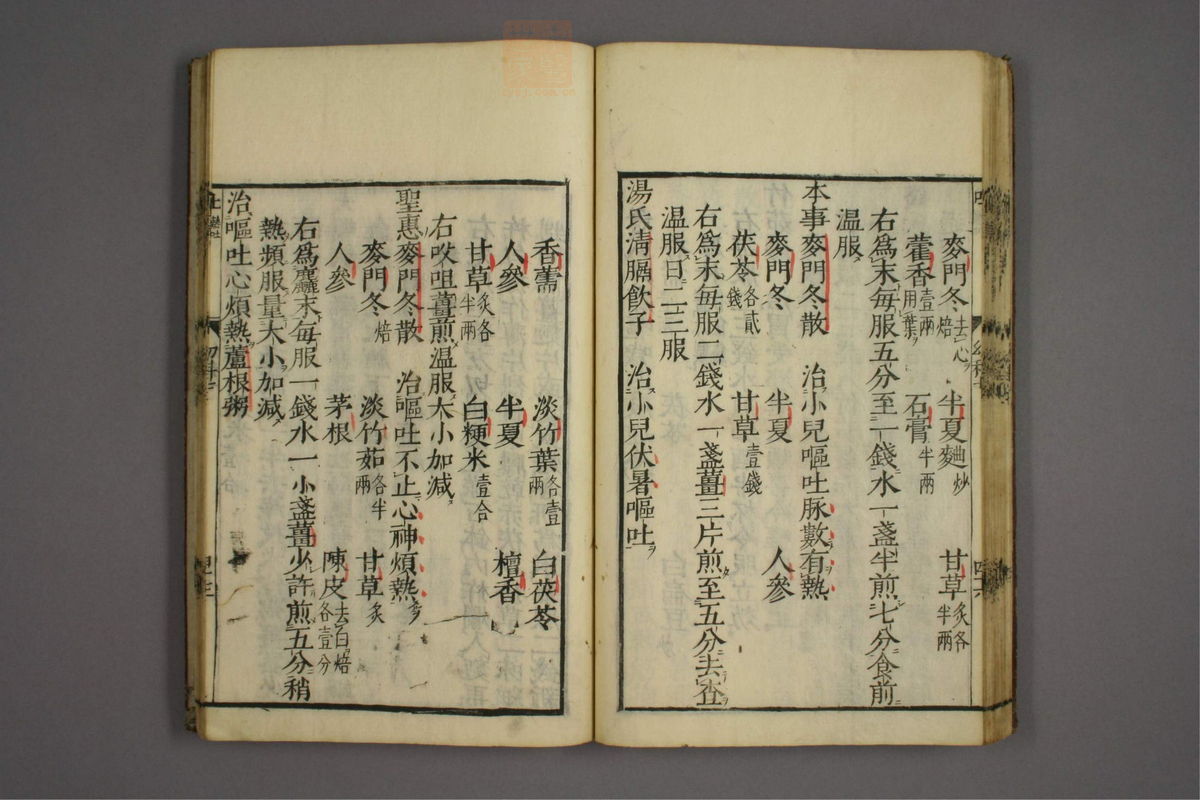 麥門冬去心焙 半夏麯炒 甘草炙各半兩
藿香壹兩用葉 石膏半兩
右爲末毎服五分至一錢水一盞半煎七分食前
温服
本事麥門冬散 治小兒嘔吐脉數有熱
麥門冬 半夏 人參
茯苓各貳錢 甘草壹錢
右爲末毎服二錢水一盞薑三片煎至五分去查
温服日二三服
湯氏清膈飲子 治小兒伏暑嘔吐
香薷 淡竹葉各壹兩 白茯苓
人參 半夏 檀香
甘草炙各半兩 白粳米壹合
右㕮咀薑煎温服大小加減
聖惠麥門冬散 治嘔吐不止心神煩熱
麥門冬焙 淡竹茹各半兩 甘草炙
人參 茅根 陳皮去白焙各壹分
右爲麤末毎服一錢水一小盞薑少許煎五分稍
熱頻服量大小加減
治嘔吐心煩熱蘆根粥